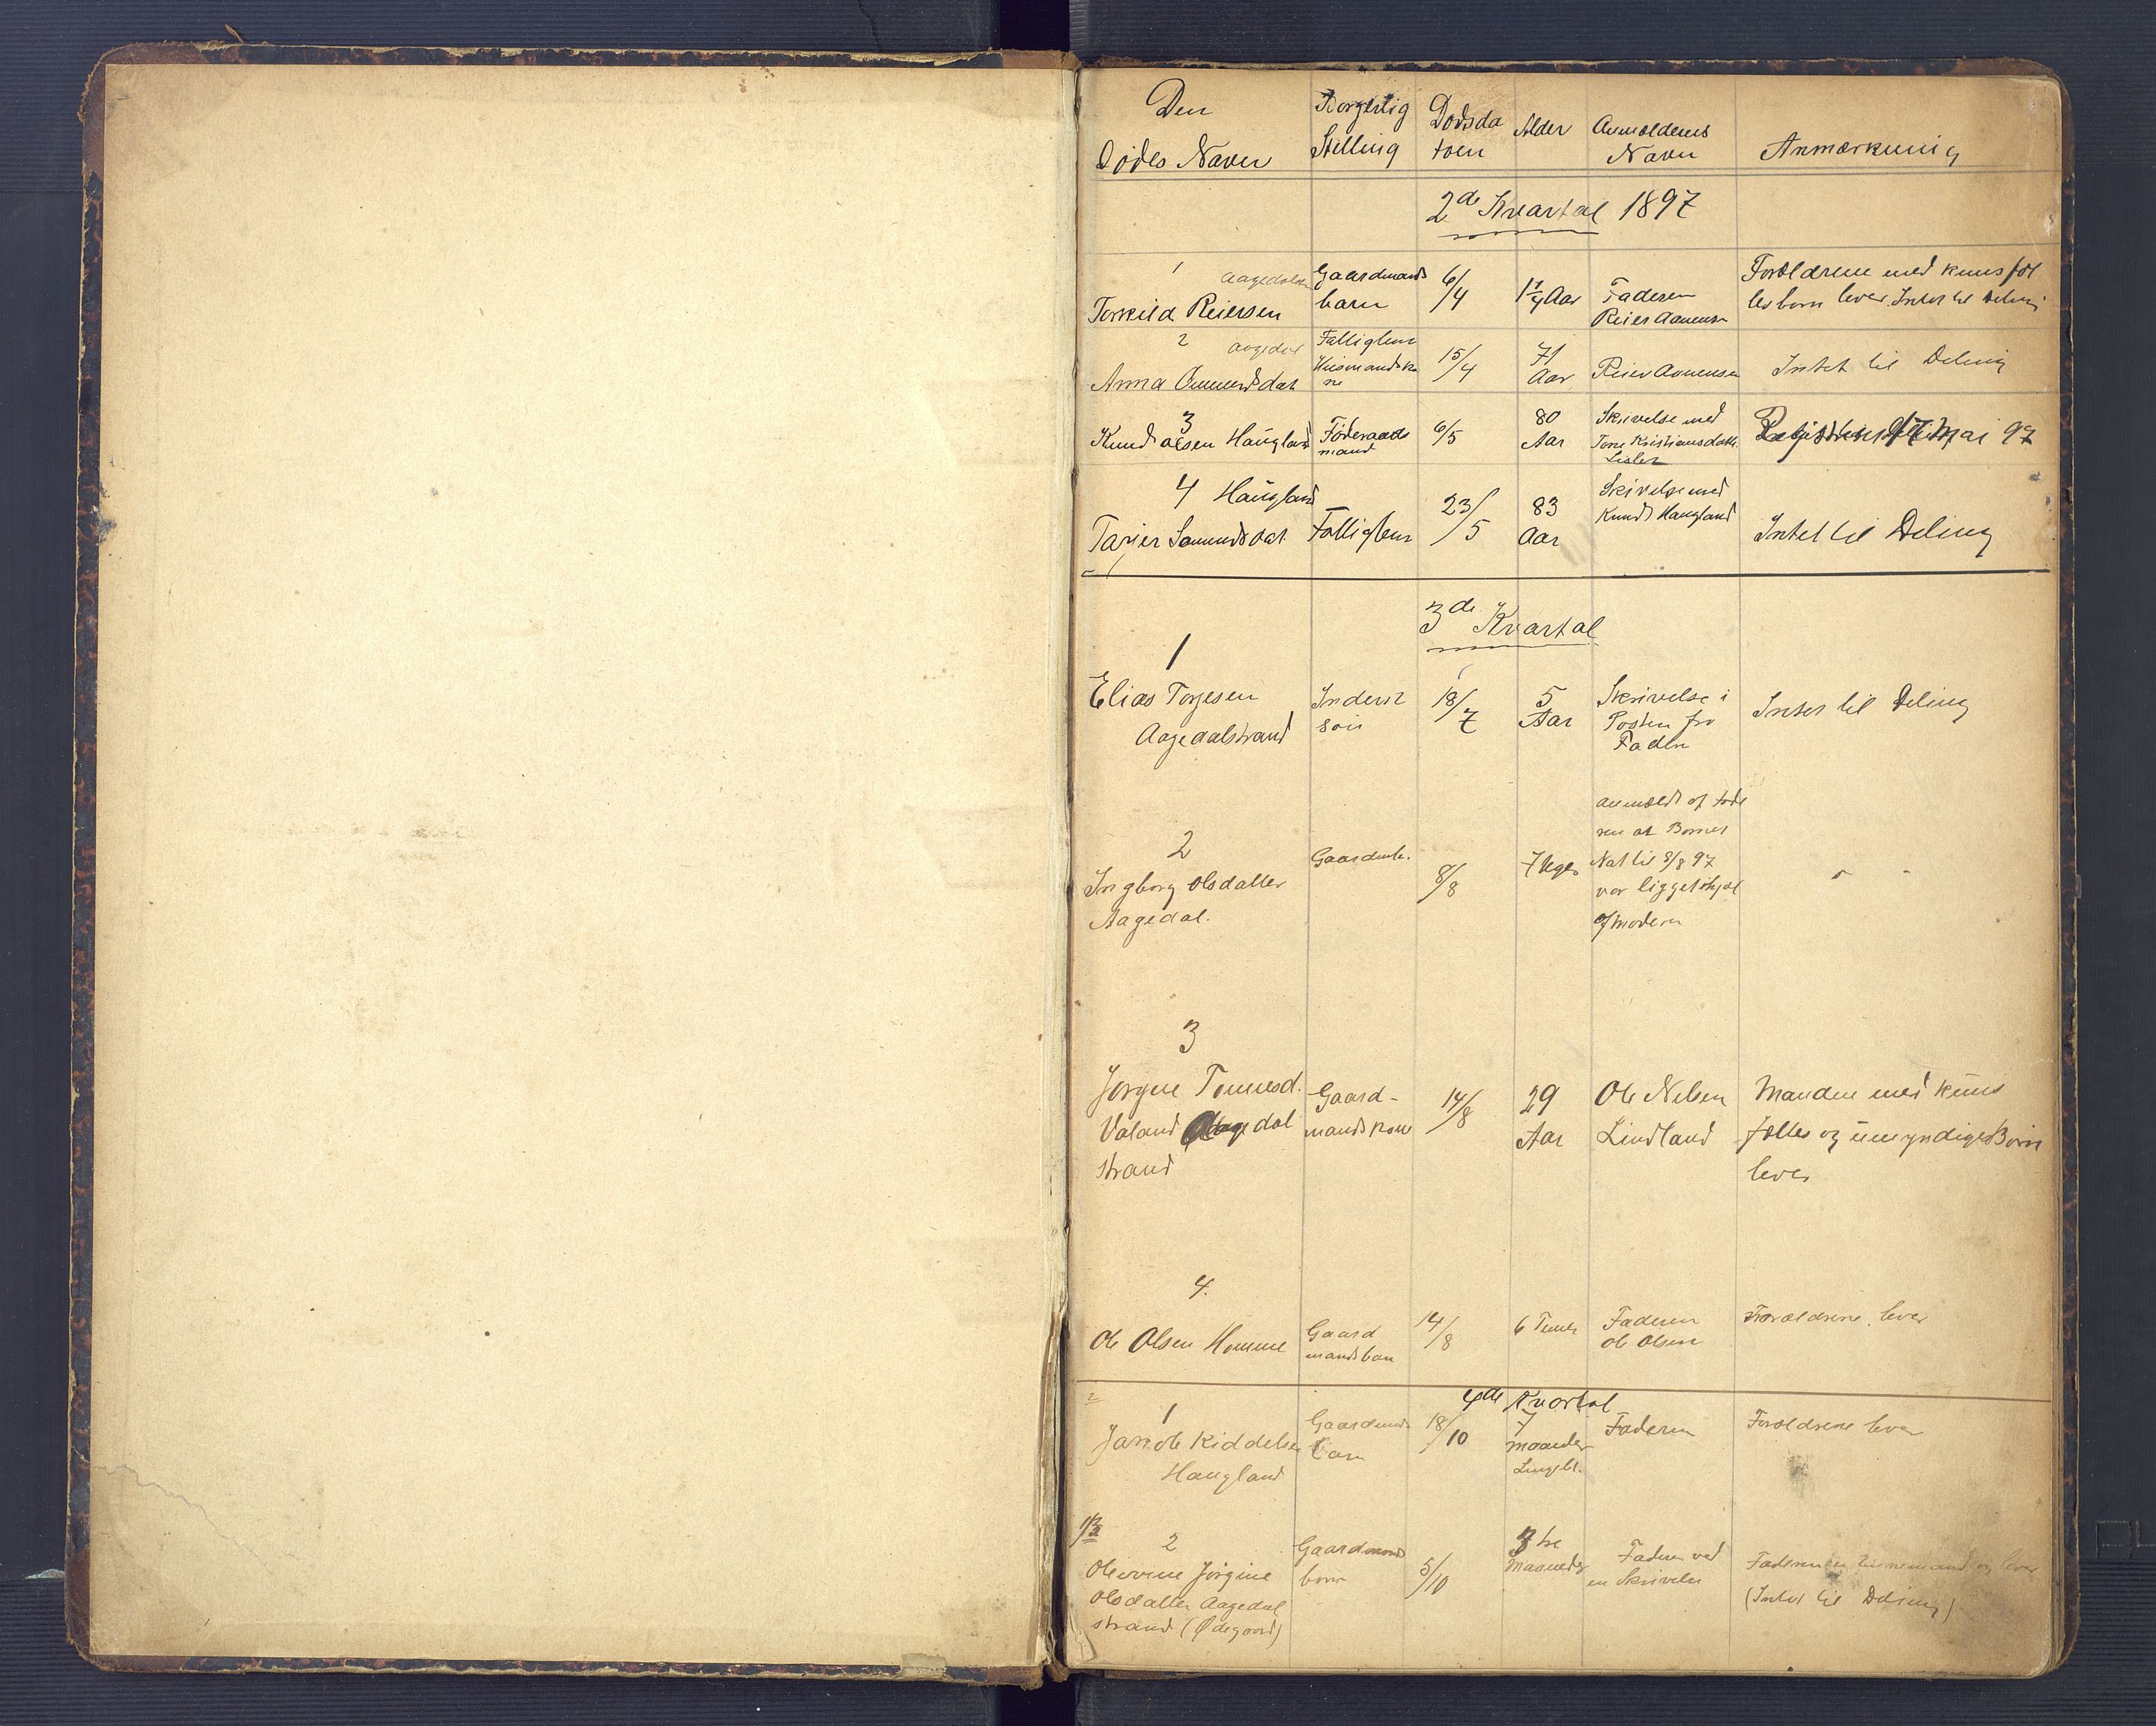 Den
Dødes Navn
Borgerlig
Stilling
Dødsda
toen
Alder
Anmelderens
Navn
Anmærkning
2de Kvartal 1897
1
Aagedalen
Torkild Reiersen
Gaardmands
barn
6/4
1 1/4 Aar
Faderen
Reier Aanensen
Forældrene med kuns fæl
lesbørn lever. Intet til Deling
2
Aagedal
Anna Omundsdat
Fattiglem
Huusmandsko
ne
15/4
71
Aar
Reier Aanensen
Intet til Deling
3
Knud Olsen Haugland
Føderaads
mand
6/5
80
Aar
Skrivelse med
Tone Kristiansdatt.
Mai 97
4 Haugland
Tarjer Samundsdat
Fattiglem
23/5
83
Aar
Skrivelse med
Knud Haugland
Intet til Deling
3de Kvartal
1
Elias Torjesen
Aagedalstrand
Inderst
søn
18/7
5
Aar
Skrivelse i
Posten fra
Faden
Intet til Deling
2
Ingborg Olsdatter
Aagedal.
Gaardmb.
8/8
7 Uger
anmeldt af Fade
ren at Barnet
Nat til 8/8 97
var ligget ihjel
af moderen
3
Jørgine Tominesd.
Valand Aagedal
strand
Gaard-
mandskone
14/8
29
Aar
Ole Nelsen
Lindland
Manden med kuns
fælles og umyndige Børn
lever
4.
Ole Olsen Homme
Gaard
mandsbarn
14/8
6 Timer
Faderen
Ole Olsen
Forældrene lever
4de Kvartal
1
Jakob Kiddelsen
Haugland
Gaardmands
barn
18/10
7
maaneder
Faderen
Forældrene lever
2
Olevine Jørgine
Olsdatter Aagedal
strand (Ødegaard)
Gaardmands
barn
5/10
3 tre
Maaneder
Faderen ved
en Skrivelse
Faderen er Enkemand og lever
(Intet til Deling)